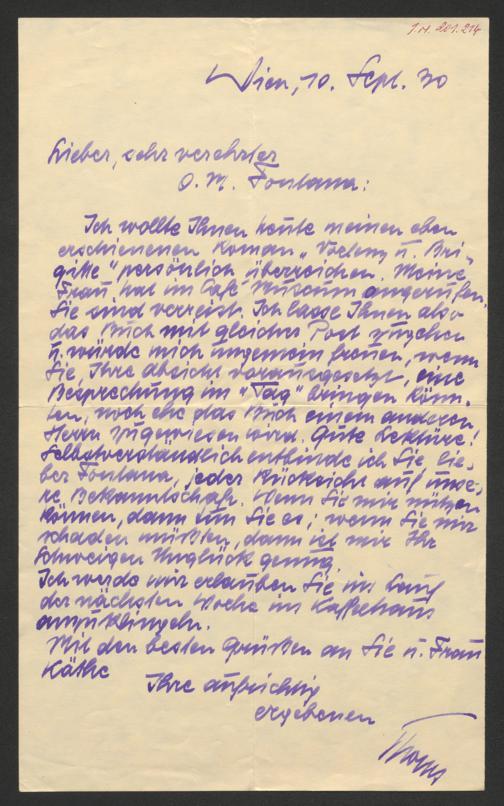 I.N. 201.214
Wien, 10. Sept. 30
Lieber, sehr verehrter
O. M. Fontana:
Ich wollte Ihnen heute meinen eben
erschienenen Roman " u. Bri-
gitte" persönlich überreichen. Meine
Frau hat im Café Museum angerufen.
Sie sind verreist. Ich lasse Ihnen also
das Buch mit gleicher Post zugehen
u. würde mich ungemein freuen, wenn
Sie, Ihre Absicht vorausgesetzt, eine
Besprechung im "Tag" bringen könn-
ten, noch ehe das Buch einem anderen
Herrn zugewiesen wird. Gute Lektüre!
Selbstverständlich entbinde ich Sie, lie-
ber Fontana, jeder Rücksicht auf unse-
re Bekanntschaft. Wenn Sie mir nützen
können, dann tun Sie es; wenn Sie mir
schaden müßten, dann ist mir Ihr
Schweigen Unglück genug.
Ich werde mir erlauben Sie im Lauf
der nächsten Woche im Kaffeehaus
anzuklingeln.
Mit den besten Grüßen an Sie u. Frau
Käthe
Ihre aufrichtig
ergebenen